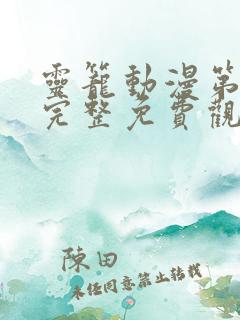 靈籠動漫第
完整免費觀
陳田
未經同意禁止轉載